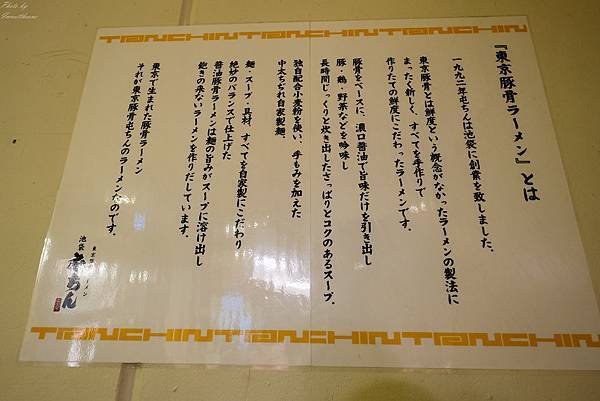 TONCHINTONCHINTONCHIN
『東京豚骨ラーメン』とは
一九九二年屯ちんは池袋に創業を致しました。
東京豚骨とは鮮度という概念がなかったラーメンの製法に
まったく新しく、すべてを手作りで
作りたての鮮度にこだわったラーメンです。
豚骨をベースに、濃口醤油で旨味だけを引き出し
豚・鶏・野菜などを吟味し
長時間じっくりと炊き出したさっぱりとコクのあるスープ。
独自配合小麦粉を使い、手もみを加えた
中太ちぢれ自家製麺。
麺・スープ・具材、すべてを自家製にこだわり
絶妙のバランスで仕上げた
醤油豚骨ラーメンは麺の旨みがスープに溶け出し
飽きの来ないラーメンを作りだしています。
東京で生まれた豚骨ラーメン
それが東京豚骨屯ちんのラーメンなのです。
東京豚骨ラーメン
池袋 屯ちん
TONCHINTONCHINTONCHIN
Photo by